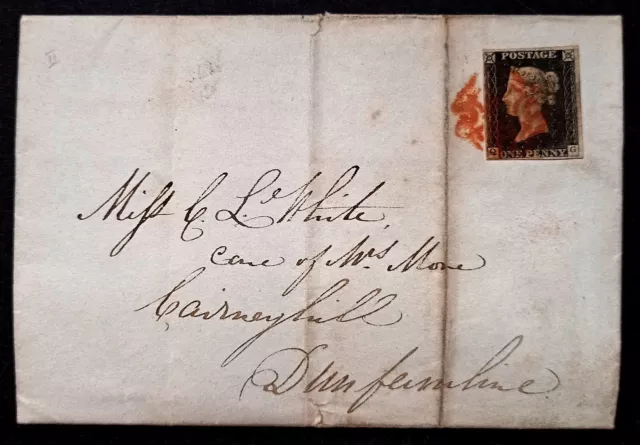 II
POSTAGE
G G
ONE PENNY
Miss C. Le White
care of Mrs More
Cairneyhill
Dunfermline